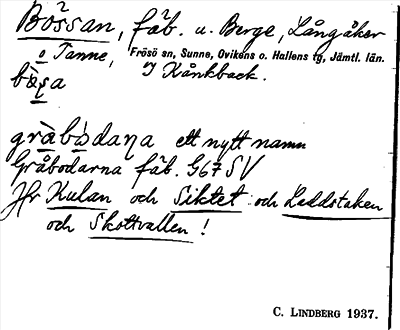 Bössan, fäb. u. Berge, Långåker
o Tanne, Frösö sn, Sunne, Ovikens o. Hallens tg, Jämtl. län.
I Kånkback.
gràbòdaṇa ett nytt namn
Gråbodarna fäb. G67 SV
Jfr Kulan och Siktet och Laddstaken
och Skottvallen!
C. LINDBERG 1937.